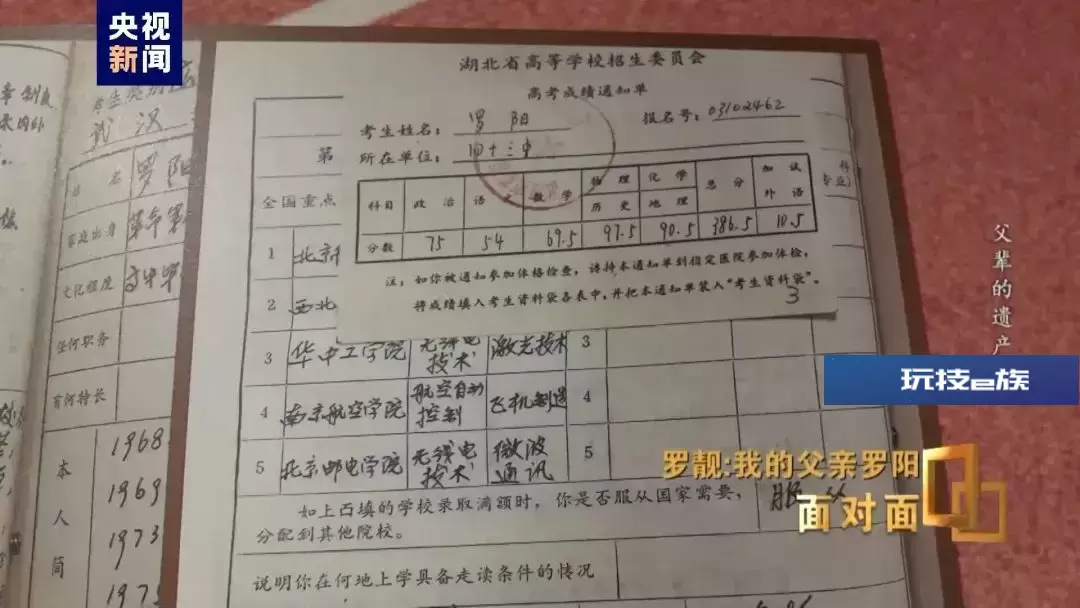 央视
新闻
湖北省高等学校招生委员会
高考成绩通知单
考生姓名: 罗阳 报名号: 03102462
所在单位: 四十三中
科目 政治 语 数学 物理 化学 总分 加试
历史 地理 外语
分数 75 54 69.5 97.5 90.5 386.5 10.5
注: 如你被通知参加体格检查, 请持本通知单到指定医院参加体检,
将成绩填入考生资料袋各表中, 并把本通知单装入“考生资料袋”。
3
第
全国重点
1 北京
2 西北
3 华中工学院 无线电技术 激光技术 3
4 南京航空学院 航空自动控制 飞机制造 4
5 北京邮电学院 无线电技术 微波通讯 5
如上面填的学校录取满额时, 你是否服从国家需要,
分配到其他院校。
服从
说明你在何地上学具备走读条件的情况
考生类别
武汉
姓名 罗阳
家庭出身 革命军
文化程度 高中毕
任何职务
有何特长
本人简
1968
1969
1973
1975
父辈的遗产
玩技e族
罗靓:我的父亲罗阳
面对面